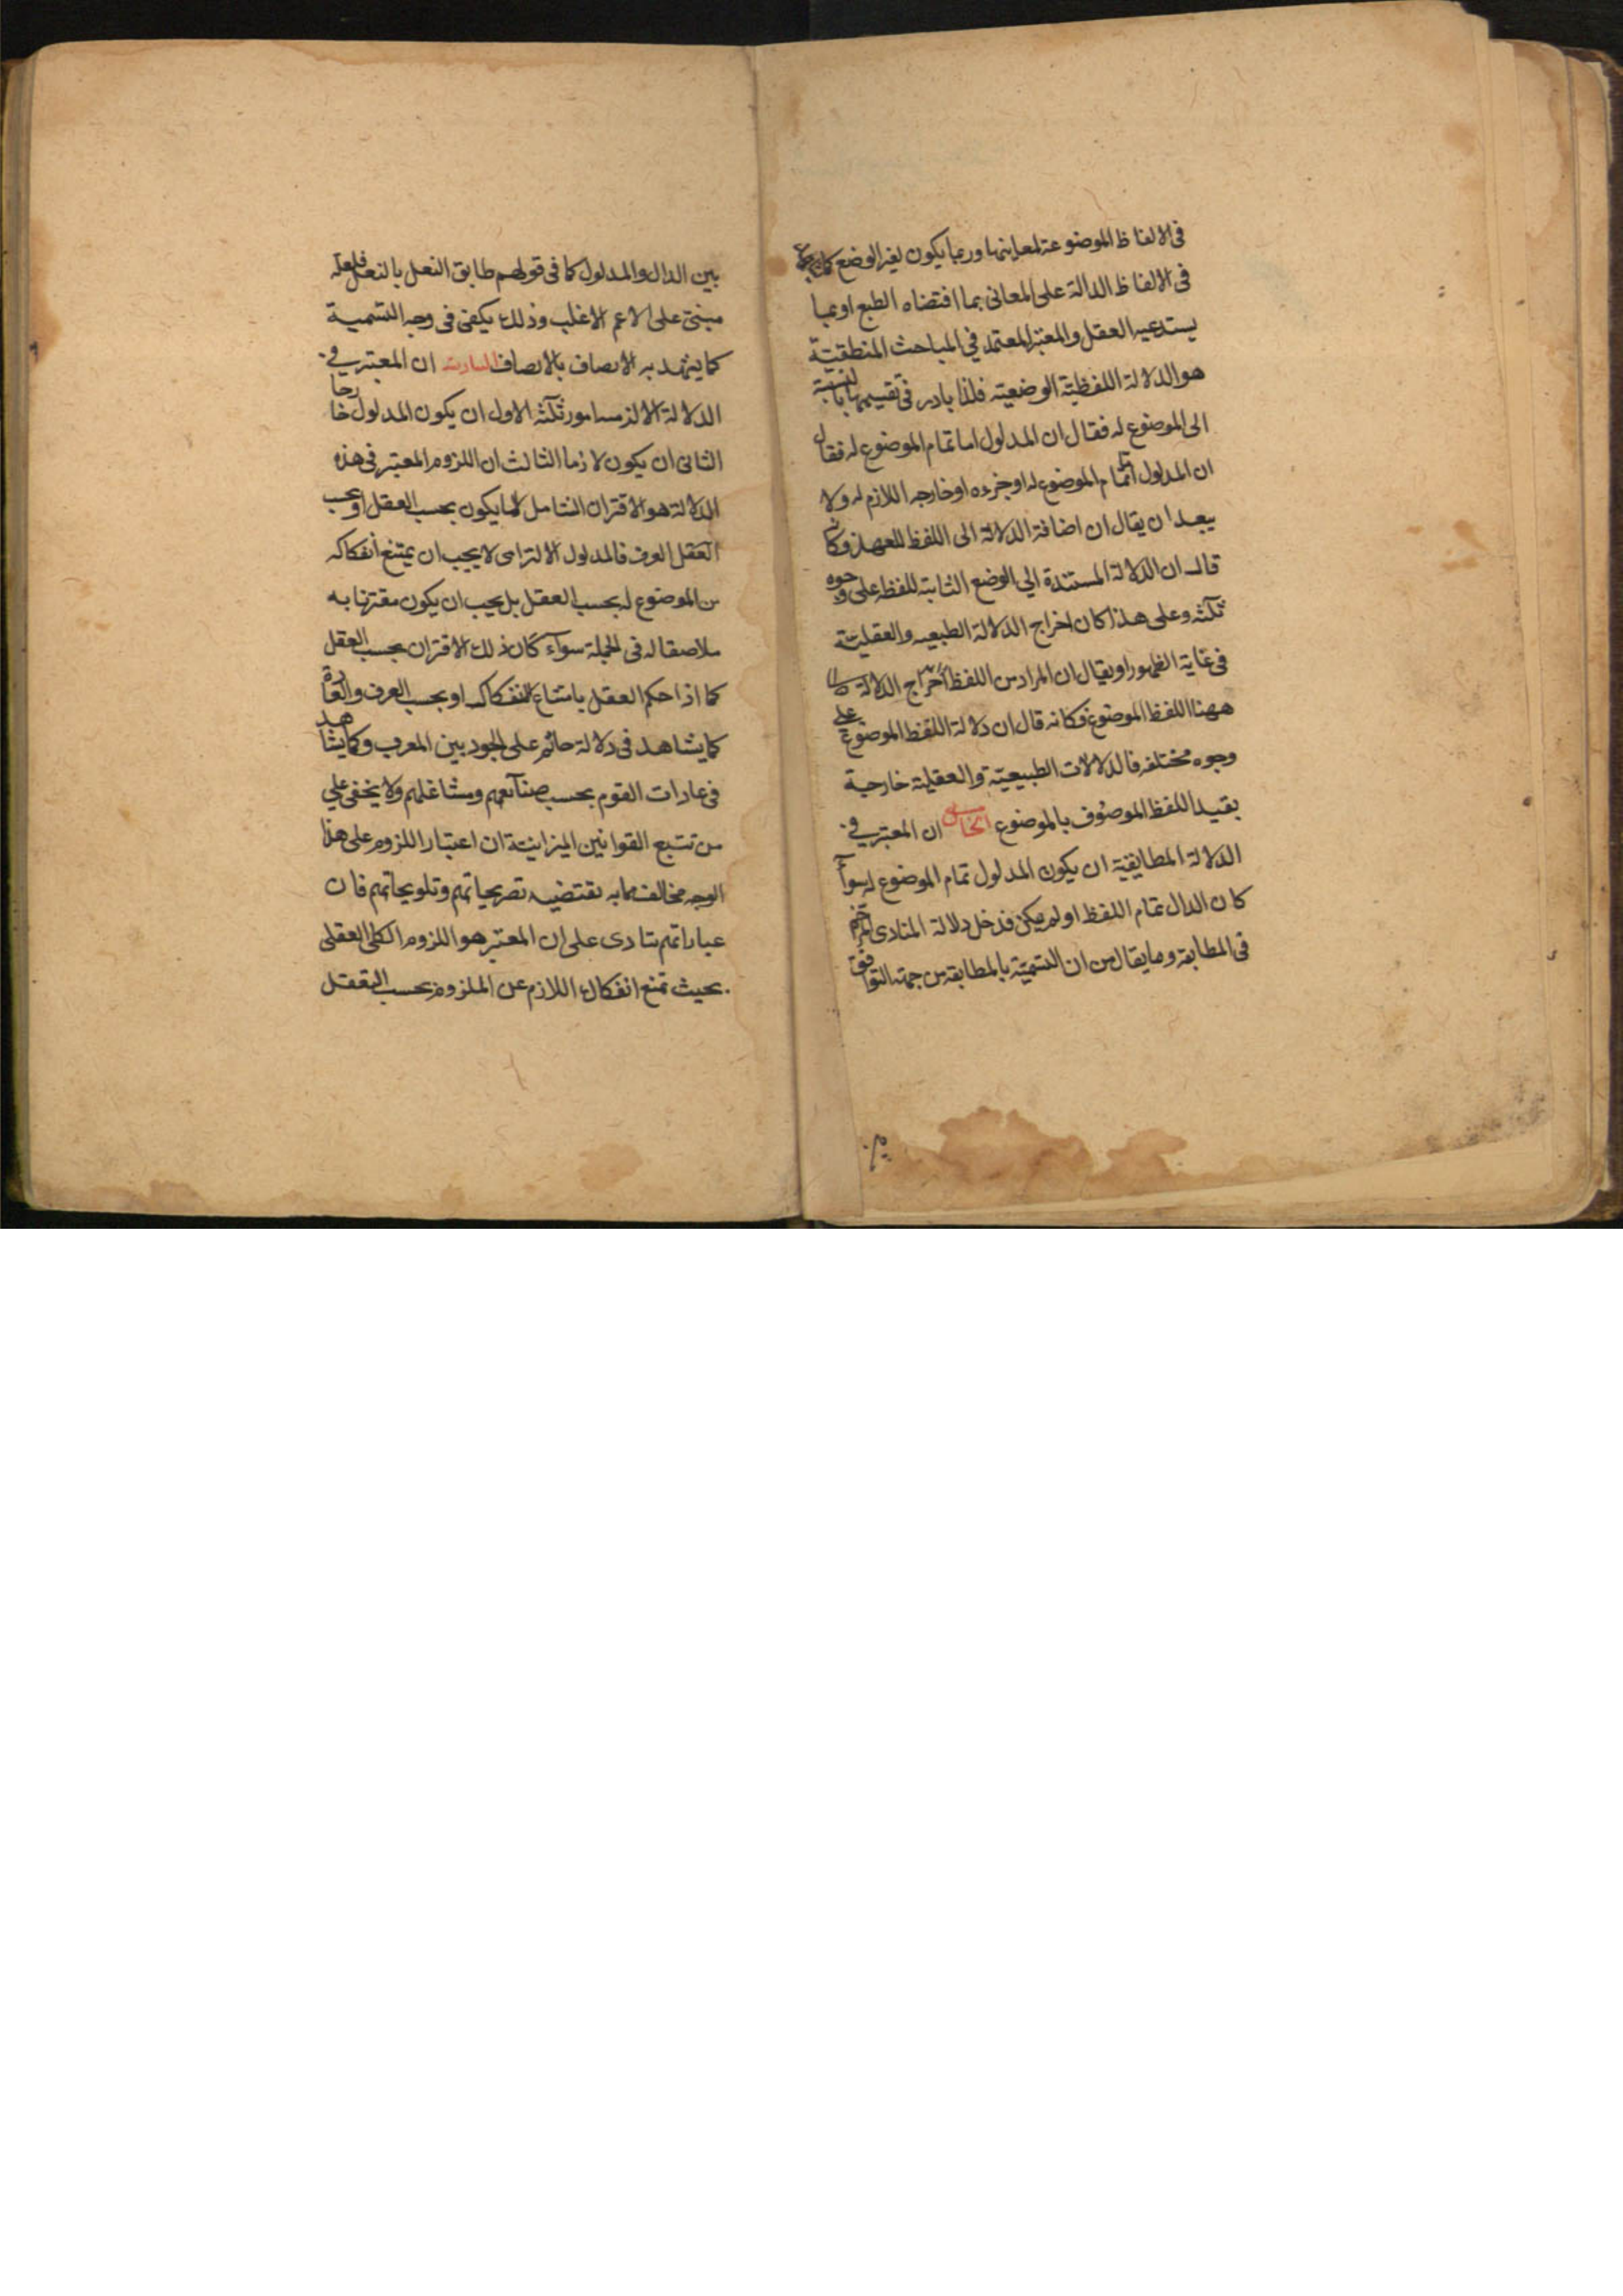 فى الالفاظ الموضوعة لمعاينها وربما يكون لغير الوضع كما
فى الالفاظ الدالة على المعانى بما اقتضاه الطبع او بما
يستدعيه العقل والمعتبر المعتمد في المباحث المنطقيّة
هو الدلالة اللفظيّة الوضعيته فلذا بادر فى تقسيمها بالنسبة
الى الموضوع له فقال ان المدلول اما تمام الموضوع له فقال
ان المدلول تمام الموضوع له او جزءه او خارجه اللازم له ولا
يبعد ان يقال ان اضافة الدلالة الى اللفظ للعهد فكانه
قال ان الدلالة المستندة الي الوضع الثابتة للفظ على وجوه
ثلثه وعلى هذا كان اخراج الدلالة الطبيعيه والعقليّة
فى غاية الظهور او يقال ان المراد من اللفظ اخراج الدلالة
ههنا اللفظ الموضوع فكانه قال ان دلالة اللفظ الموضوع على
وجوه مختلفه فالدلالات الطبيعيّة والعقلية خارجية
بقيد اللفظ الموصوف بالموضوع الخامس ان المعتبر في
الدلالة المطابقية ان يكون المدلول تمام الموضوع له سوآء
كان الدال تمام اللفظ او لم يكن فدخل دلالة المنادى المرخم
فى المطابقة وما يقال من ان التسميّة بالمطابقة من جهة التوافق
بين الدال والمدلول كما فى قولهم طابق النعل بالنعل فلعله
مبنىّ على الاعم الاغلب وذلك يكفى فى وجه التسمية
كما يشهد به الانصاف بالانصاف السادس ان المعتبر في
الدلالة الالتزمـ امور ثلثه الاول ان يكون المدلول خارجا
الثانى ان يكون لازما الثالث ان اللزوم المعتبر فى هذه
الدلالة هو الاقتران الشامل لما يكون بحسب العقل او بحسب
العقل العرف فالمدلول الالتزامى لا يجب ان يمتنع انفكاكه
من الموضوع له بحسب العقل بل يجب ان يكون مقترنا به
ملاصقا له فى الجملة سوآء كان ذلك الاقتران بحسب العقل
كما اذا حكم العقل بامتناع انفكاكه او بحسب العرف والعادة
كما يشاهد فى دلالة حاتم على الجود بين العرب وكما يشاهد
فى عادات القوم بحسب صنآئعهم ومشاغلهم ولا يخفى علي
من تتبع القوانين الميزانية ان اعتبار اللزوم على هذا
الوجه مخالف لما به تقتضيه تصريحاتهم وتلويحاتهم فان
عباراتهم تنادى على ان المعتبر هو اللزوم الكلى العقلى
بحيث تمنع انفكاك اللازم عن الملزوم بحسب التعقل